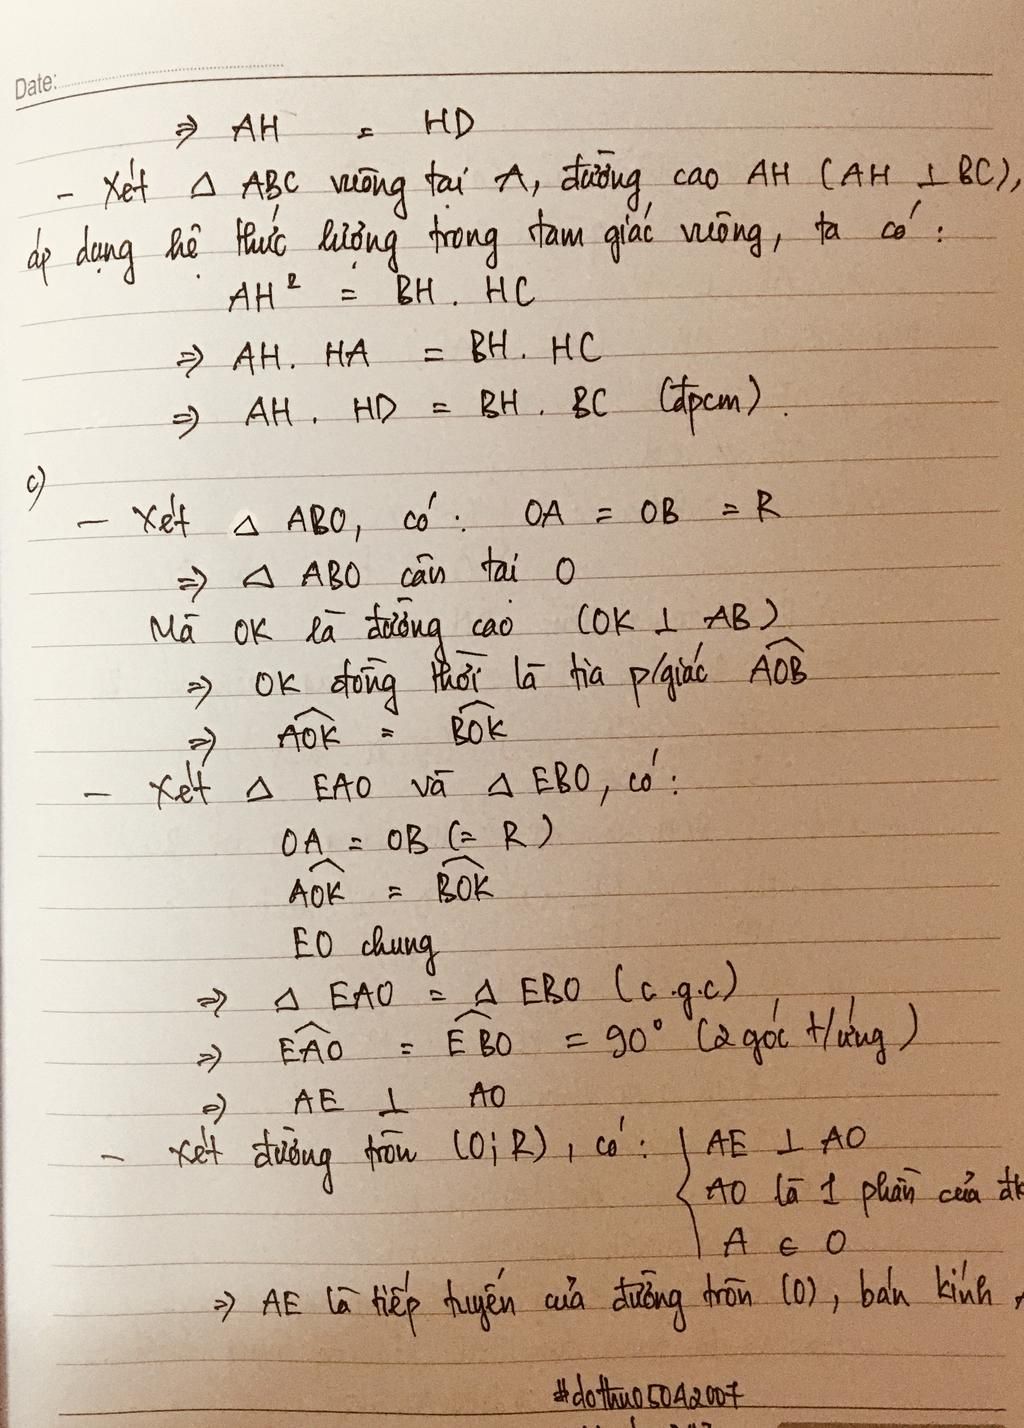 Date:
⇒ AH = HD
- Xét △ ABC vuông tại A, đường cao AH (AH ⊥ BC),
áp dụng hệ thức lượng trong tam giác vuông, ta có:
AH² = BH . HC
⇒ AH . HA = BH . HC
⇒ AH . HD = BH . BC (đpcm).
c)
- Xét △ ABO, có: OA = OB = R
⇒ △ ABO cân tại O
Mà OK là đường cao (OK ⊥ AB)
⇒ OK đồng thời là tia p/giác \widehat{AOB}
⇒ \widehat{AOK} = \widehat{BOK}
- Xét △ EAO và △ EBO, có:
OA = OB (= R)
\widehat{AOK} = \widehat{BOK}
EO chung
⇒ △ EAO = △ EBO (c.g.c)
⇒ \widehat{EAO} = \widehat{EBO} = 90° (2 góc t/ứng)
⇒ AE ⊥ AO
- Xét đường tròn (O;R), có: { AE ⊥ AO
AO là 1 phần của đk
A ∈ O
⇒ AE là tiếp tuyến của đường tròn (O), bán kính
#dothu05042007